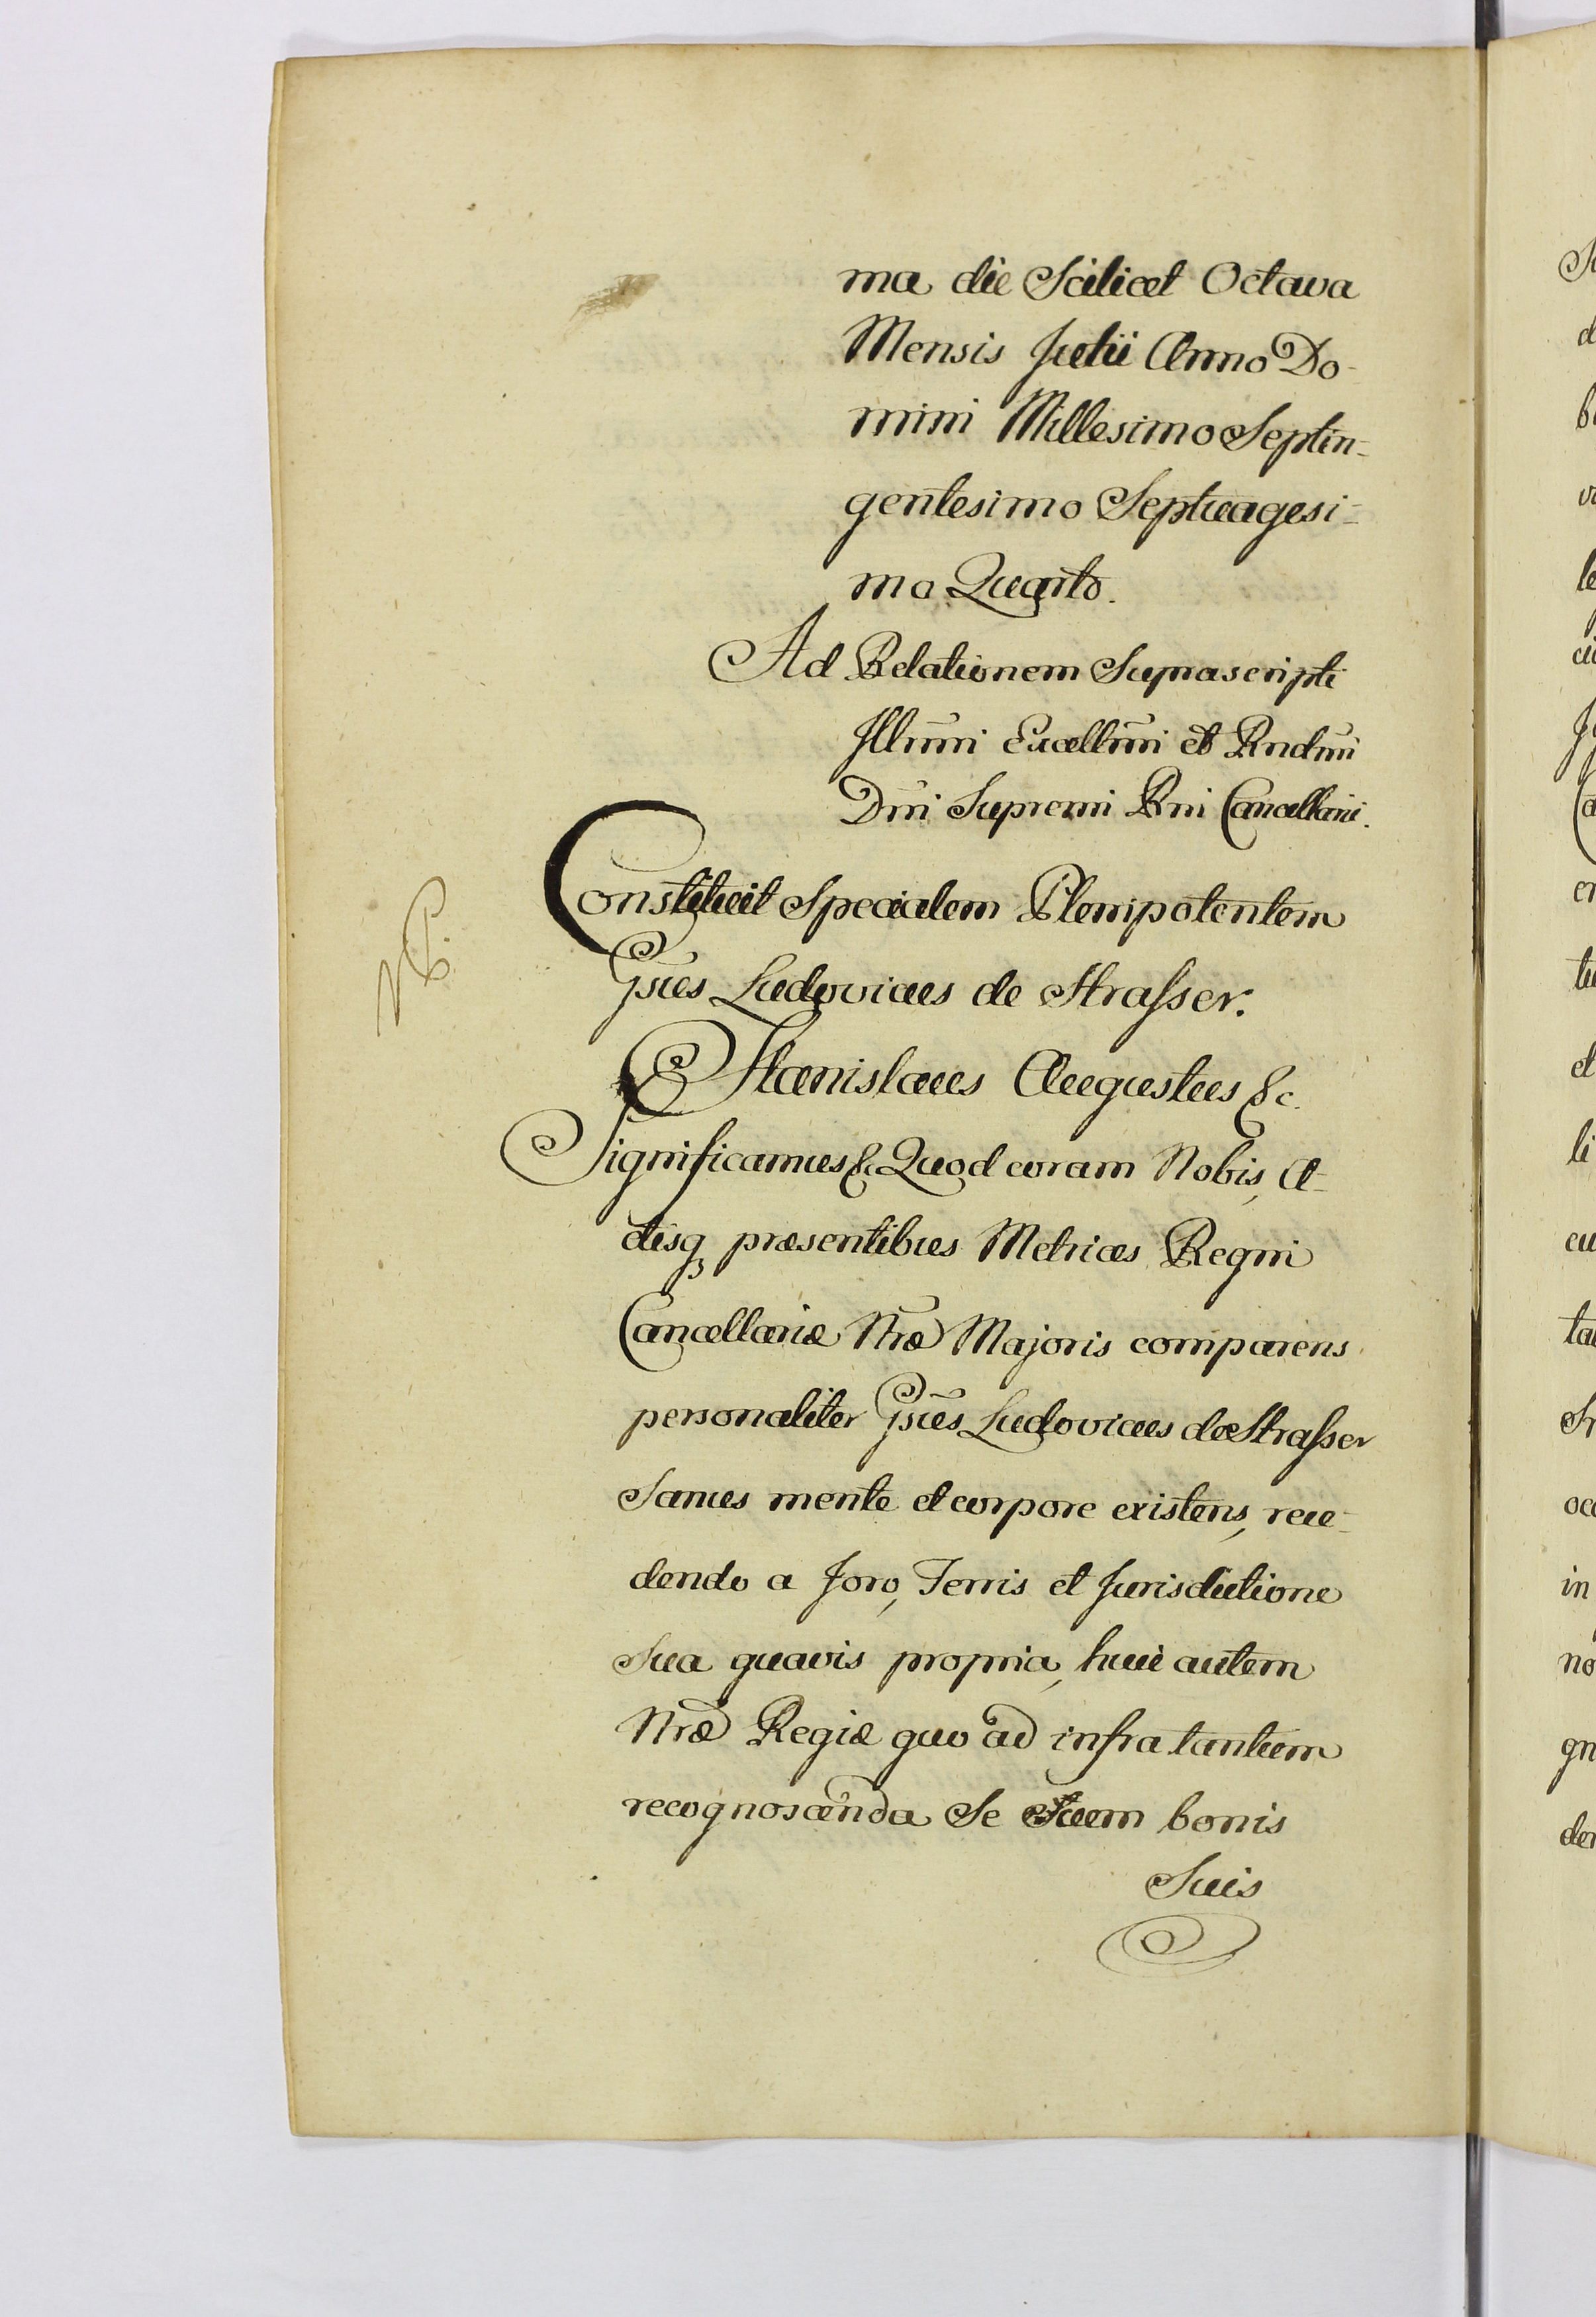 ma die Scilicet Octava
Mensis Julii Anno Do-
mini Millesimo Septin-
gentesimo Septuagesi-
mo Quarto.
Ad Relationem Suprascripti
Illm̃i Excellm̃i et Rndm̃i
Dñi Supremi Rñi Cancellarii.
Constituit Specialem Plenipotentem
Gsũs Ludovicus de Strasser.
Stanislaus Augustus &c.
Significamus &c. Quod coram Nobis, A-
ctisq, præsentibus Metrices Regni
Cancellariæ Nr̃æ Majoris comparens
personaliter Gsũs Ludovicus de Strasser
Sanus mente et corpore existens, rece-
dendo a foro, Terris et Jurisdictione
Sua quavis propria, huic autem
Nr̃æ Regiæ quo ad infra tantum
recognoscenda Se Suem bonis
Suis